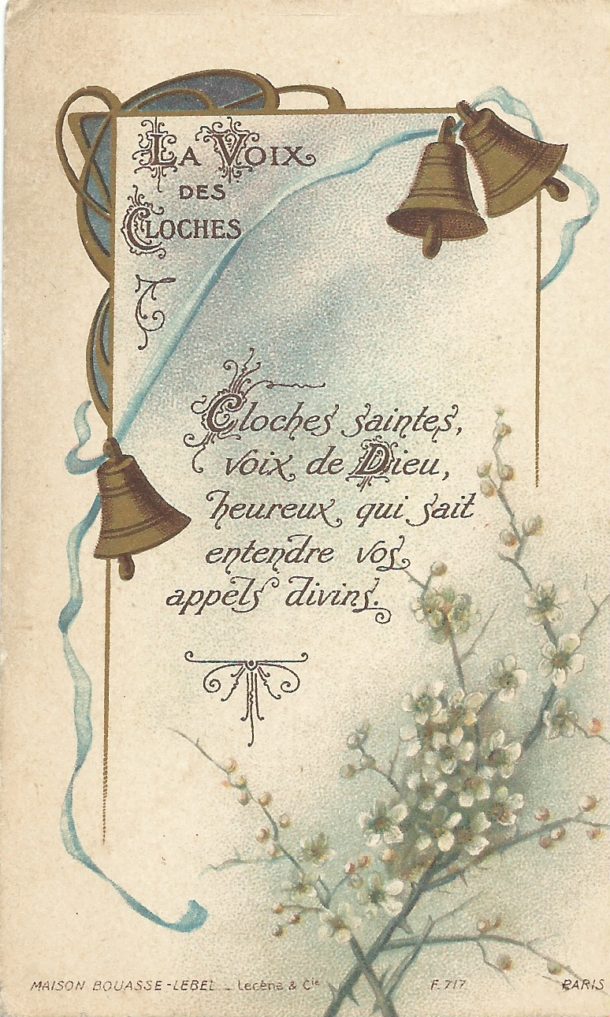 La Voix
des
Cloches
Cloches saintes,
voix de Dieu,
heureux qui sait
entendre vos
appels divins.
MAISON BOUASSE-LEBEL _ Lecène & Cie F. 717 PARIS